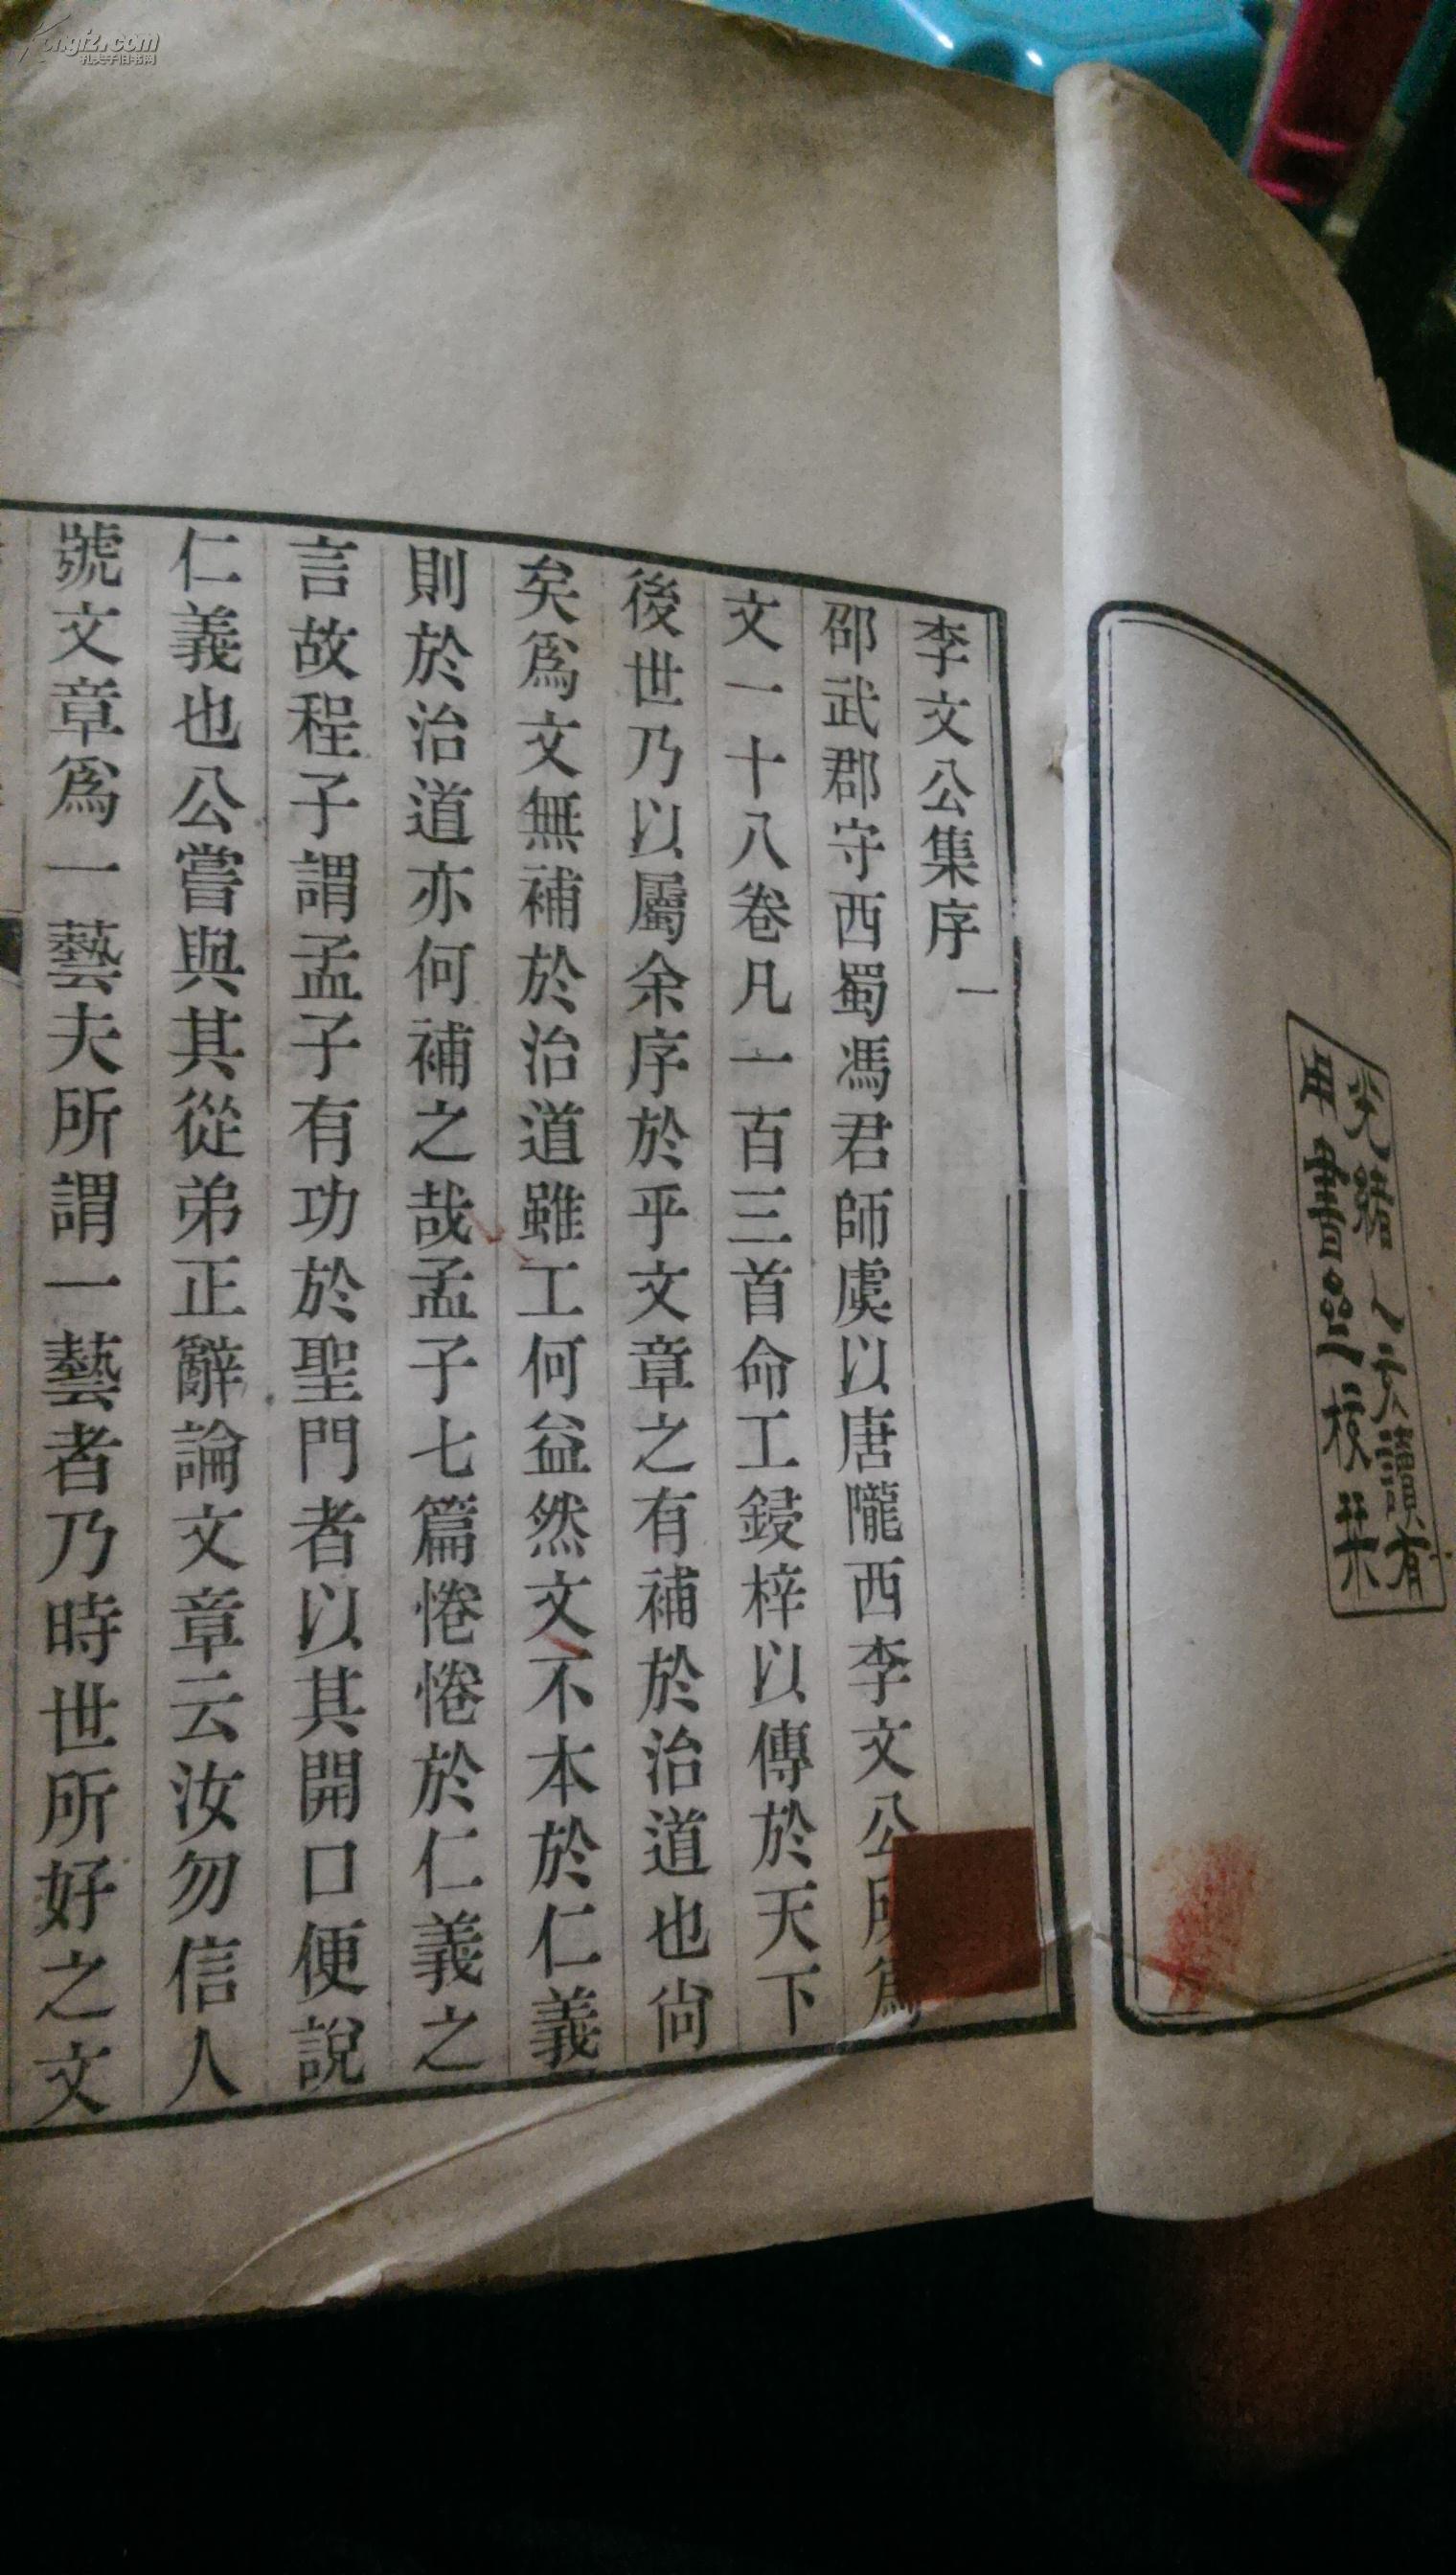 光緒乙亥讀有
用書齋校栞
李文公集序一
邵武郡守西蜀馮君師虞以唐隴西李文公所爲
文一十八卷凡一百三首命工鋟梓以傳於天下
後世乃以屬余序於乎文章之有補於治道也尙
矣爲文無補於治道雖工何益然文不本於仁義
則於治道亦何補之哉孟子七篇惓惓於仁義之
言故程子謂孟子有功於聖門者以其開口便說
仁義也公嘗與其從弟正辭論文章云汝勿信人
號文章爲一藝夫所謂一藝者乃時世所好之文
孔夫子旧书网